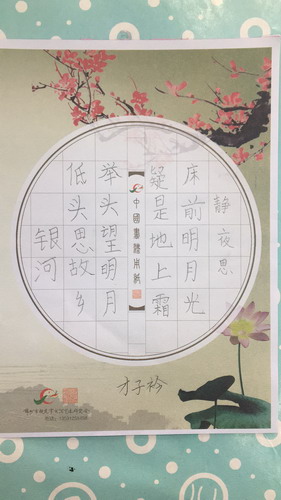 静夜思
床前明月光
疑是地上霜
中國書法用紙
举头望明月
低头思故乡
银河
才子衿